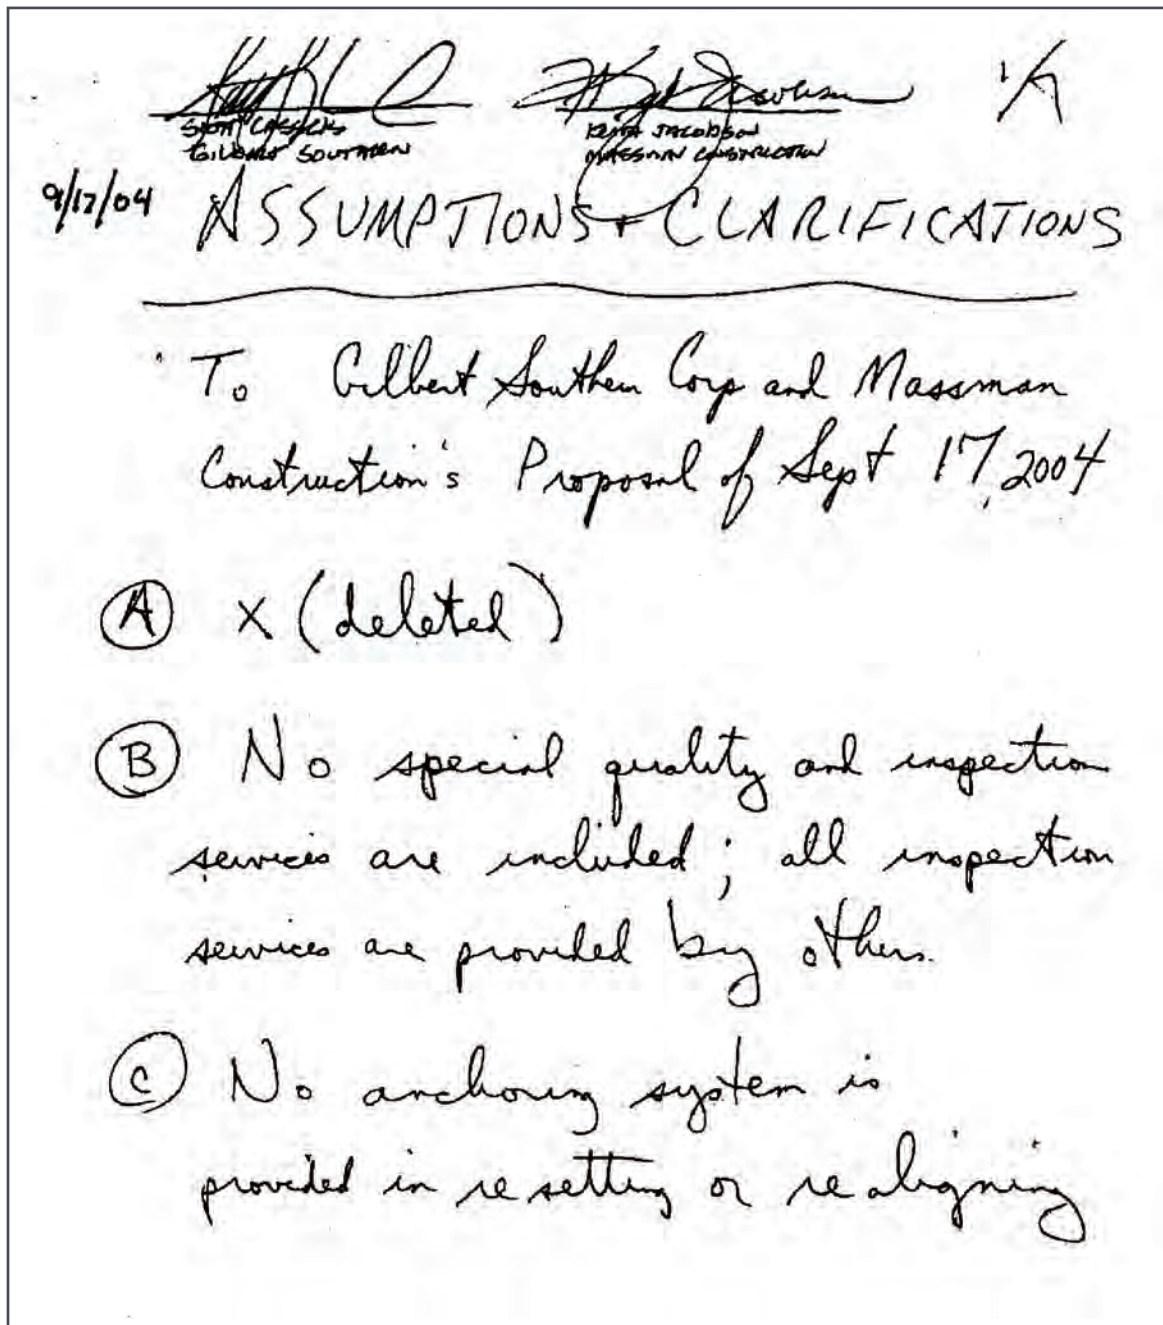 SCOTT CASSELS
GILBERT SOUTHERN
KEITH JACOBSON
MASSMAN CONSTRUCTION
9/17/04 ASSUMPTIONS + CLARIFICATIONS
To Gilbert Southern Corp and Massman
Construction's Proposal of Sept 17, 2004
A X (deleted)
B No special quality and inspection
services are included; all inspection
services are provided by others.
C No anchoring system is
provided in resetting or realigning